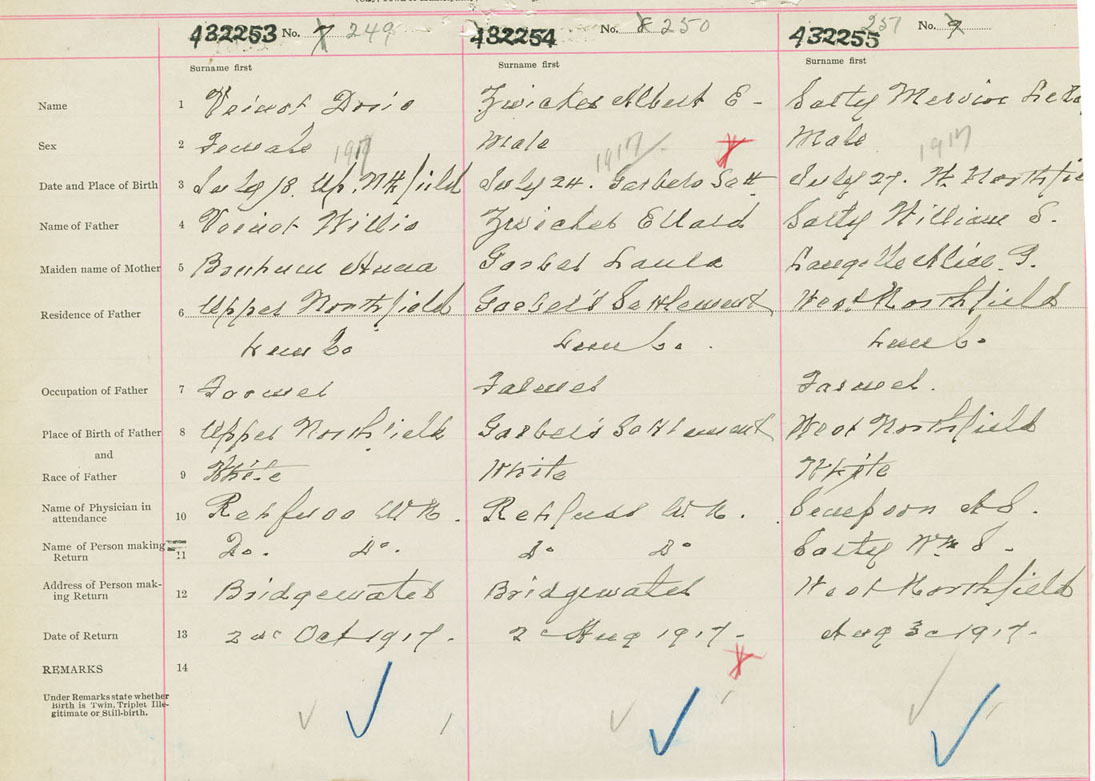 432253 No. 7 249 432254 No. 8 250 432255 251 No. 9
Surname first Surname first Surname first
Name 1 Veinot Doris Zwicker Albert E - Mervin
Sex 2 Female Male Male
1917 1917 1917
Date and Place of Birth 3 July 18. Up. Nth field July 24. Garbers Sett July 27. W. Northfie
Name of Father 4 Veinot Willis Zwicker Ellard William S.
Maiden name of Mother 5 Anna Garber Laula Langille Alice. G.
Residence of Father 6 Upper Northfield Garber's Settlement West Northfield
Lun Co Lun Co. Lun Co
Occupation of Father 7 Farmer Farmer Farmer.
Place of Birth of Father 8 Upper Northfield Garber's Settlement West Northfield
and
Race of Father 9 White White White
Name of Physician in
attendance 10 Rehfuss W N. Rehfuss W. N. S.
Name of Person making
Return 11 Do. Do. Do Do Wm S.
Address of Person mak-
ing Return 12 Bridgewater Bridgewater West Northfield
Date of Return 13 2nd Oct 1917. 2 Aug 1917- Aug 30 1917.
REMARKS 14
Under Remarks state whether
Birth is Twin, Triplet Ille-
gitimate or Still-birth.